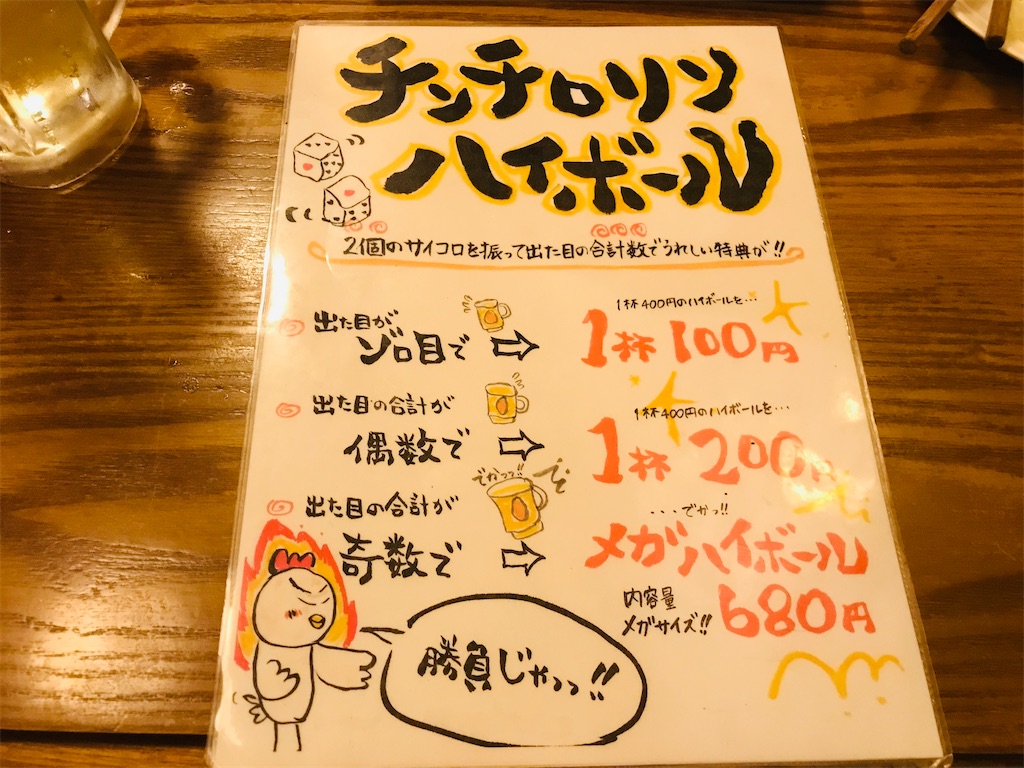 チンチロリン
ハイボール
2個のサイコロを振って出た目の合計数でうれしい特典が!!
出た目が
ゾロ目で
1杯400円のハイボールを・・・
1杯100円
出た目の合計が
偶数で
1杯400円のハイボールを・・・
1杯200円
出た目の合計が
奇数で
でかっっ!!
・・・でかっ!!
メガハイボール
内容量
メガサイズ!!
680円
勝負じゃっっ!!